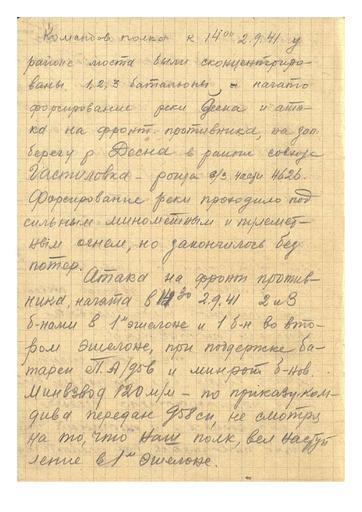 Командов. полка к 14⁰⁰ 2.9.41 у
районе моста были сконцентриро-
ваны 1,2,3 батальоны и начато
форсирование реки Десна и ата-
ка на фронт. противника, на зап.
берегу р Десна в районе совхоза
– роща с/з 4626.
Форсирование реки проходило под
сильным минометным и пулемет-
ным огнем, но закончилось без
потерь.
Атака на фронт против-
ника, начата в 30 2.9.41 2 и 3
б-нами в 1ᵐ эшелоне и 1 б-н во вто-
ром эшелоне, при поддержке ба-
тареи П.А/958 и минрот б-нов.
Минвзвод 120 м/м – по приказу ком-
дива передан 958 сп, не смотря
на то, что наш полк, вел наступ-
ление в 1ᵐ эшелоне.